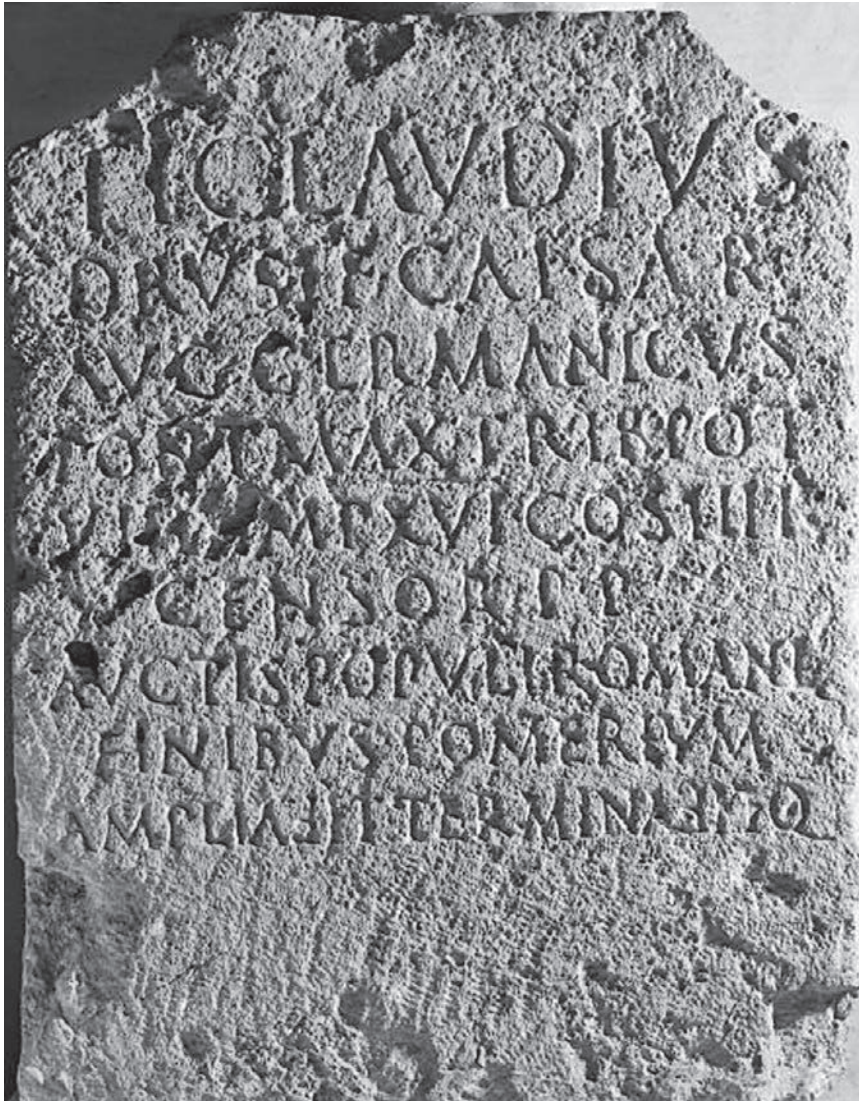 TI CLAVDIVS
DRVSI F CAISAR
AVG GERMANICVS
PONT MAX TRIB POT
IMP XVI COS IIII
CENSOR P P
AVCTIS POPVLI ROMANI
FINIBVS POMERIVM
AMPLIAℲIT TERMINAℲITQ